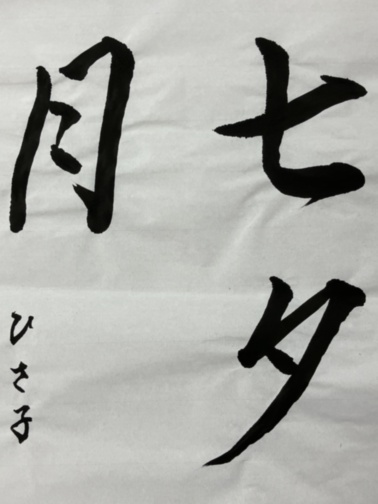 七夕
月
ひさ子